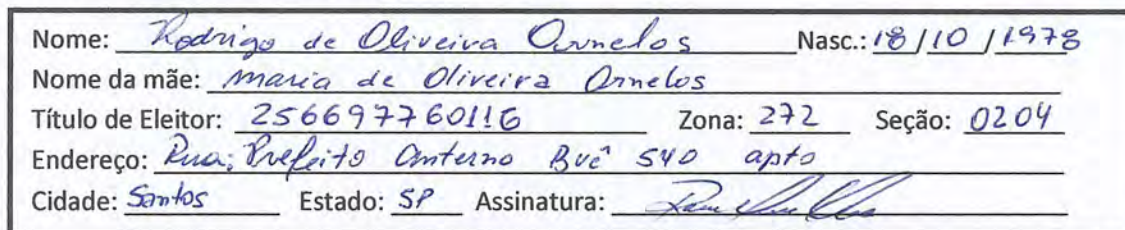 Nome: Rodrigo de Oliveira Ornelos Nasc.: 18/10/1978
Nome da mãe: Maria de Oliveira Ornelos
Título de Eleitor: 256697760116 Zona: 272 Seção: 0204
Endereço: Rua: Prefeito Anterno Bué 540 apto
Cidade: Santos Estado: SP Assinatura: